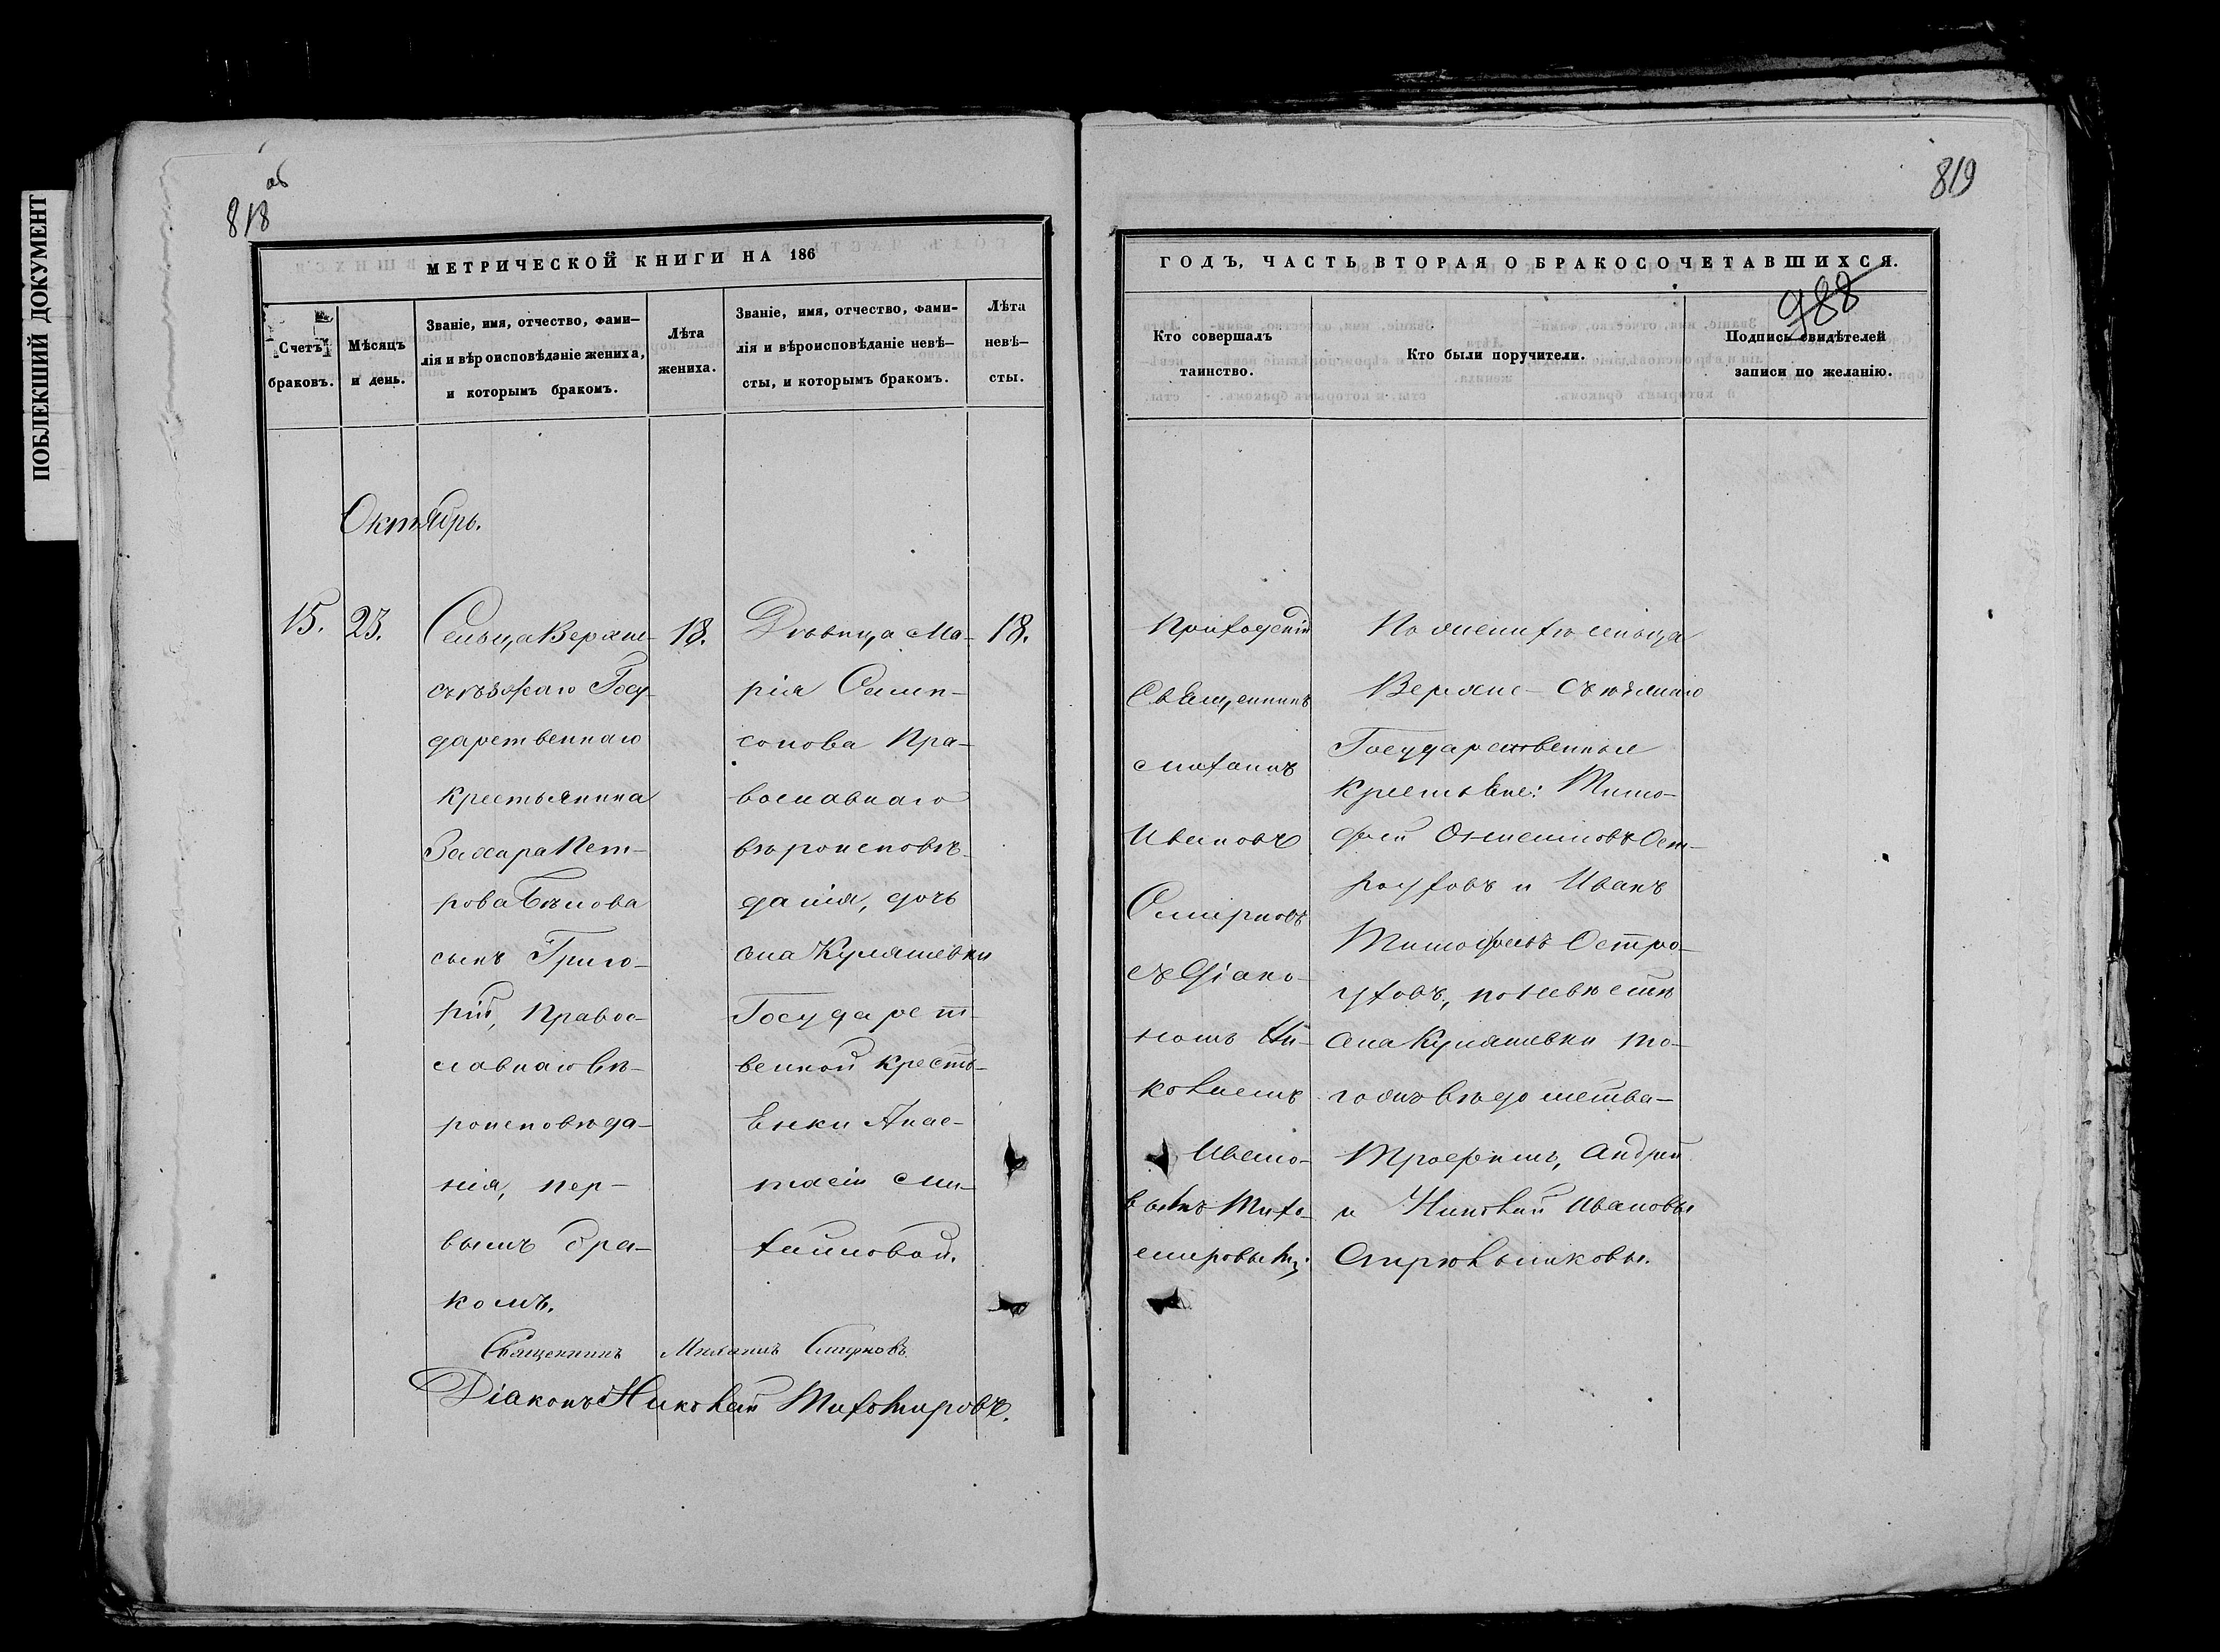 ПОБЛЕКШИЙ ДОКУМЕНТ
об
818
МЕТРИЧЕСКОЙ КНИГИ НА 186
Счетъ
браковъ.
Мѣсяцъ
и день.
Званіе, имя, отчество, фами-
лія и вѣроисповѣданіе жениха,
и которымъ бракомъ.
Лѣта
жениха.
Званіе, имя, отчество, фами-
лія и вѣроисповѣданіе невѣ-
сты, и которымъ бракомъ.
Лѣта
невѣ-
сты.
Октябрь.
15.
23.
Сельца Верхне-
съѣзжаго Госу-
дарственнаго
крестьянина
Захара Пет-
рова Бѣлова
сынъ Григо-
рій, Правос-
лавнаго вѣ-
роисповѣда-
нія, пер-
вымъ бра-
комъ.
18.
Дѣвица Ма-
рія Самп-
сонова Пра-
вославнаго
вѣроисповѣ-
данія, дочь
села Куляшевки
Государст-
венной кресть-
янки Анас-
тасіи Ми-
хайловой.
18.
Священникъ Михаилъ Смирновъ
Діаконъ Николай Тихомировъ.
819
ГОДЪ, ЧАСТЬ ВТОРАЯ О БРАКОСОЧЕТАВШИХСЯ.
988
Кто совершалъ
таинство.
Кто были поручители.
Подпись свидѣтелей
записи по желанію.
Приходскій
Священникъ
Михаилъ
Ивановъ
Смирновъ
съ Діако-
номъ Ни-
колаемъ
Ивано-
вымъ Тихо-
мировымъ.
По женихѣ сельца
Верхне-съѣзжаго
Государственные
крестьяне: Тимо-
фей Ост-
роуховъ и Иванъ
Тимофеевъ Остро-
уховъ, по невѣстѣ
села Куляшевки то-
гожъ вѣдомства-
Трофимъ, Андрей
и Николай Ивановы